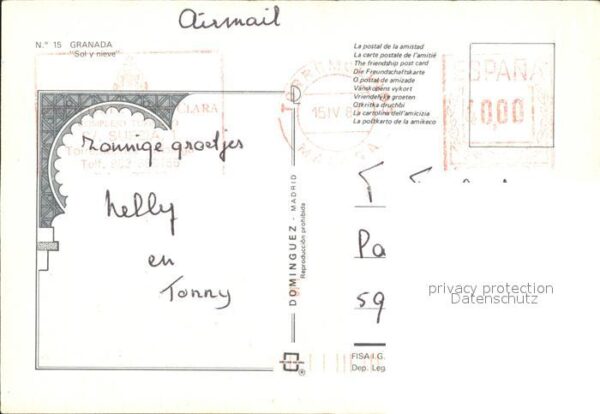 Airmail
N.º 15 GRANADA
"Sol y nieve"
La postal de la amistad
La carte postale de l'amitié
The friendship post card
Die Freundschaftskarte
O postal de amizade
Vänskapens vykort
Vriendelijke groeten
Otkritka druchbi
La cartolina dell'amicizia
La postkarto de la amikeco
ESPAÑA
15 IV 8
MALAGA
CLARA
Zonnige groetjes
Nelly
en
Tonny
DOMINGUEZ - MADRID
Reproducción prohibida
Pa
59
privacy protection
Datenschutz
FISA I.G.
Dep. Leg